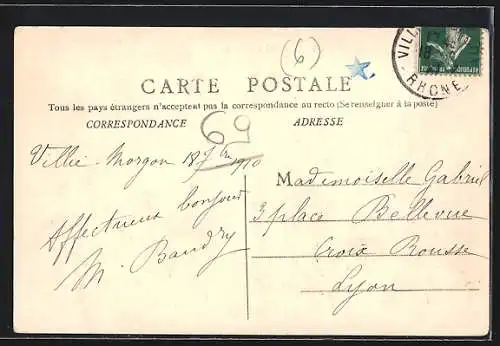 (6)
VILL
RHONE
REPUBLIQUE FRANÇAISE
CARTE POSTALE
Tous les pays étrangers n'acceptent pas la correspondance au recto (Se renseigner à la poste)
CORRESPONDANCE
ADRESSE
69
Villié-Morgon 18 1910
Affectueux bonjour
M. Baudry
Mademoiselle Gabriel
3 place Bellevue
Croix Rousse
Lyon